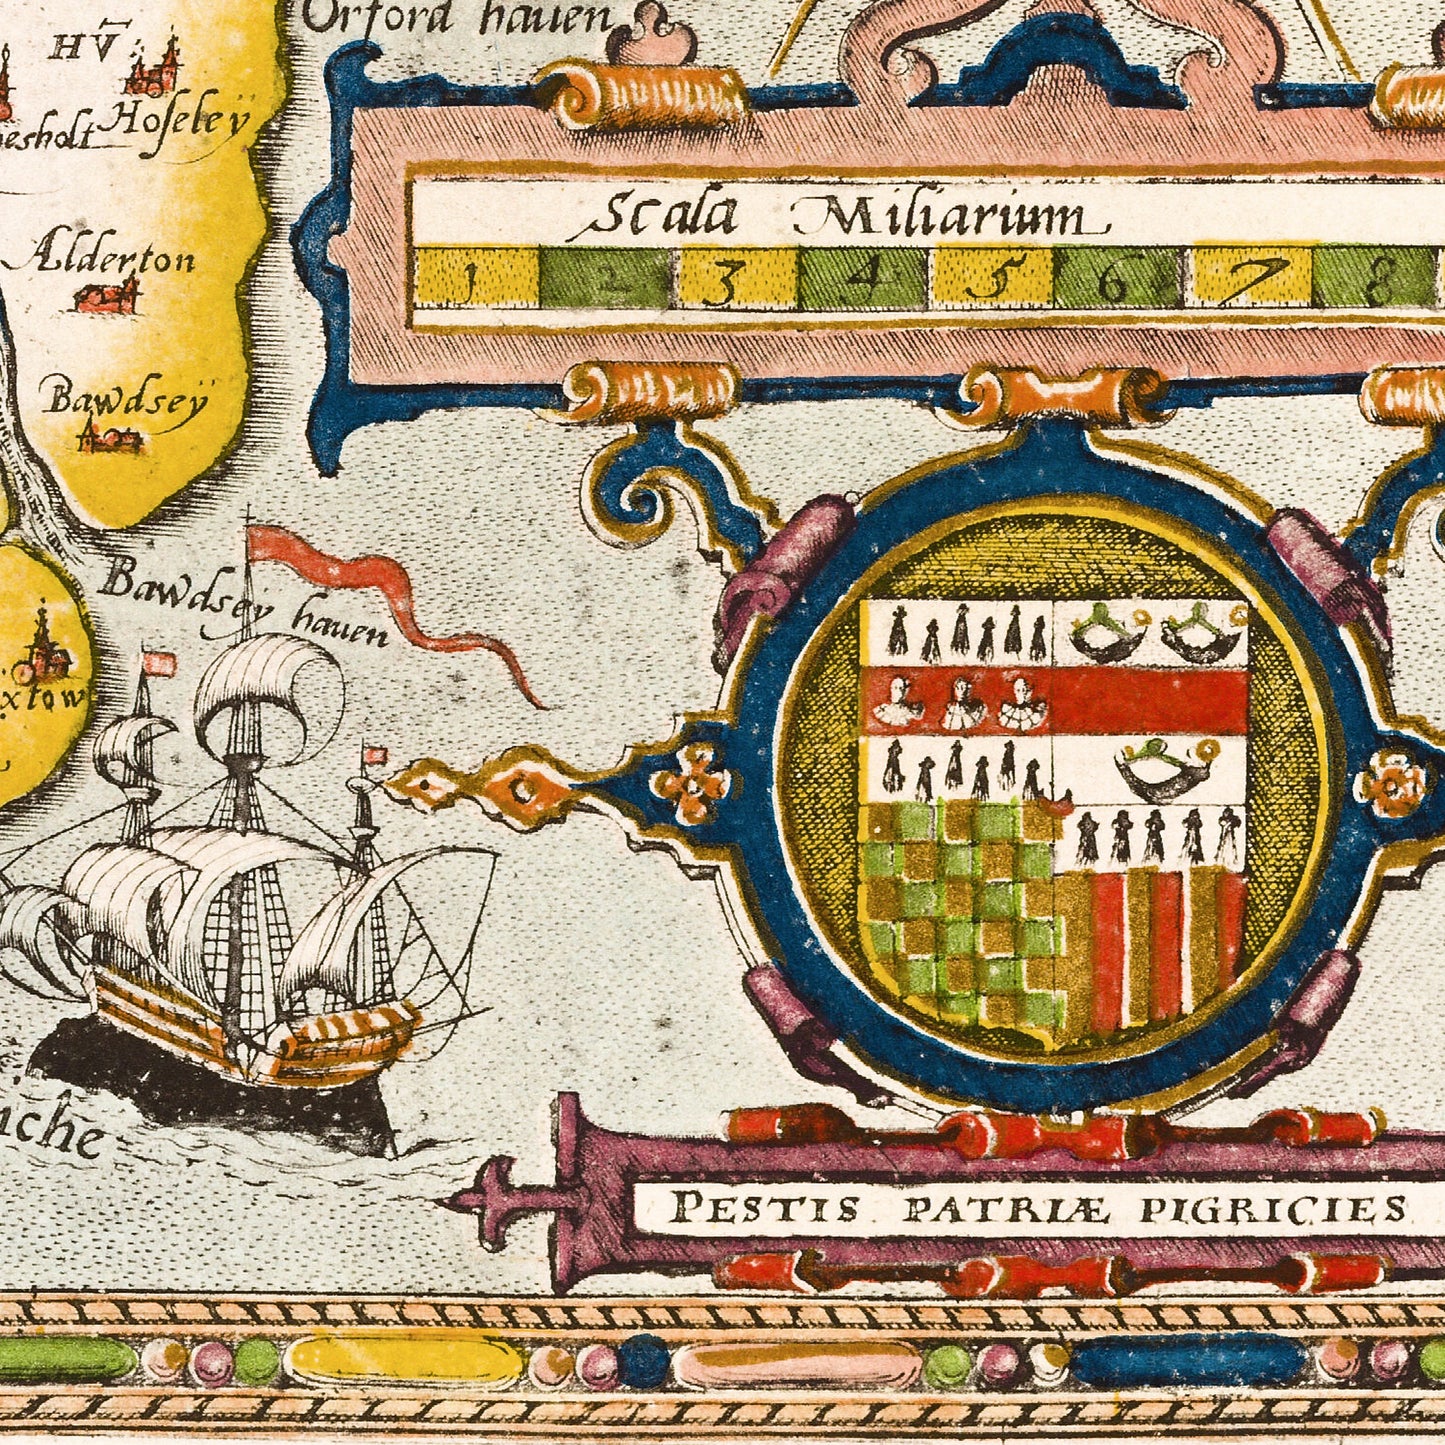 Orford hauen
HV̄
Hoſeleÿ
Alderton
Bawdseÿ
Bawdseÿ hauen
Scala Miliarium
1 2 3 4 5 6 7 8
PESTIS PATRIÆ PIGRICIES